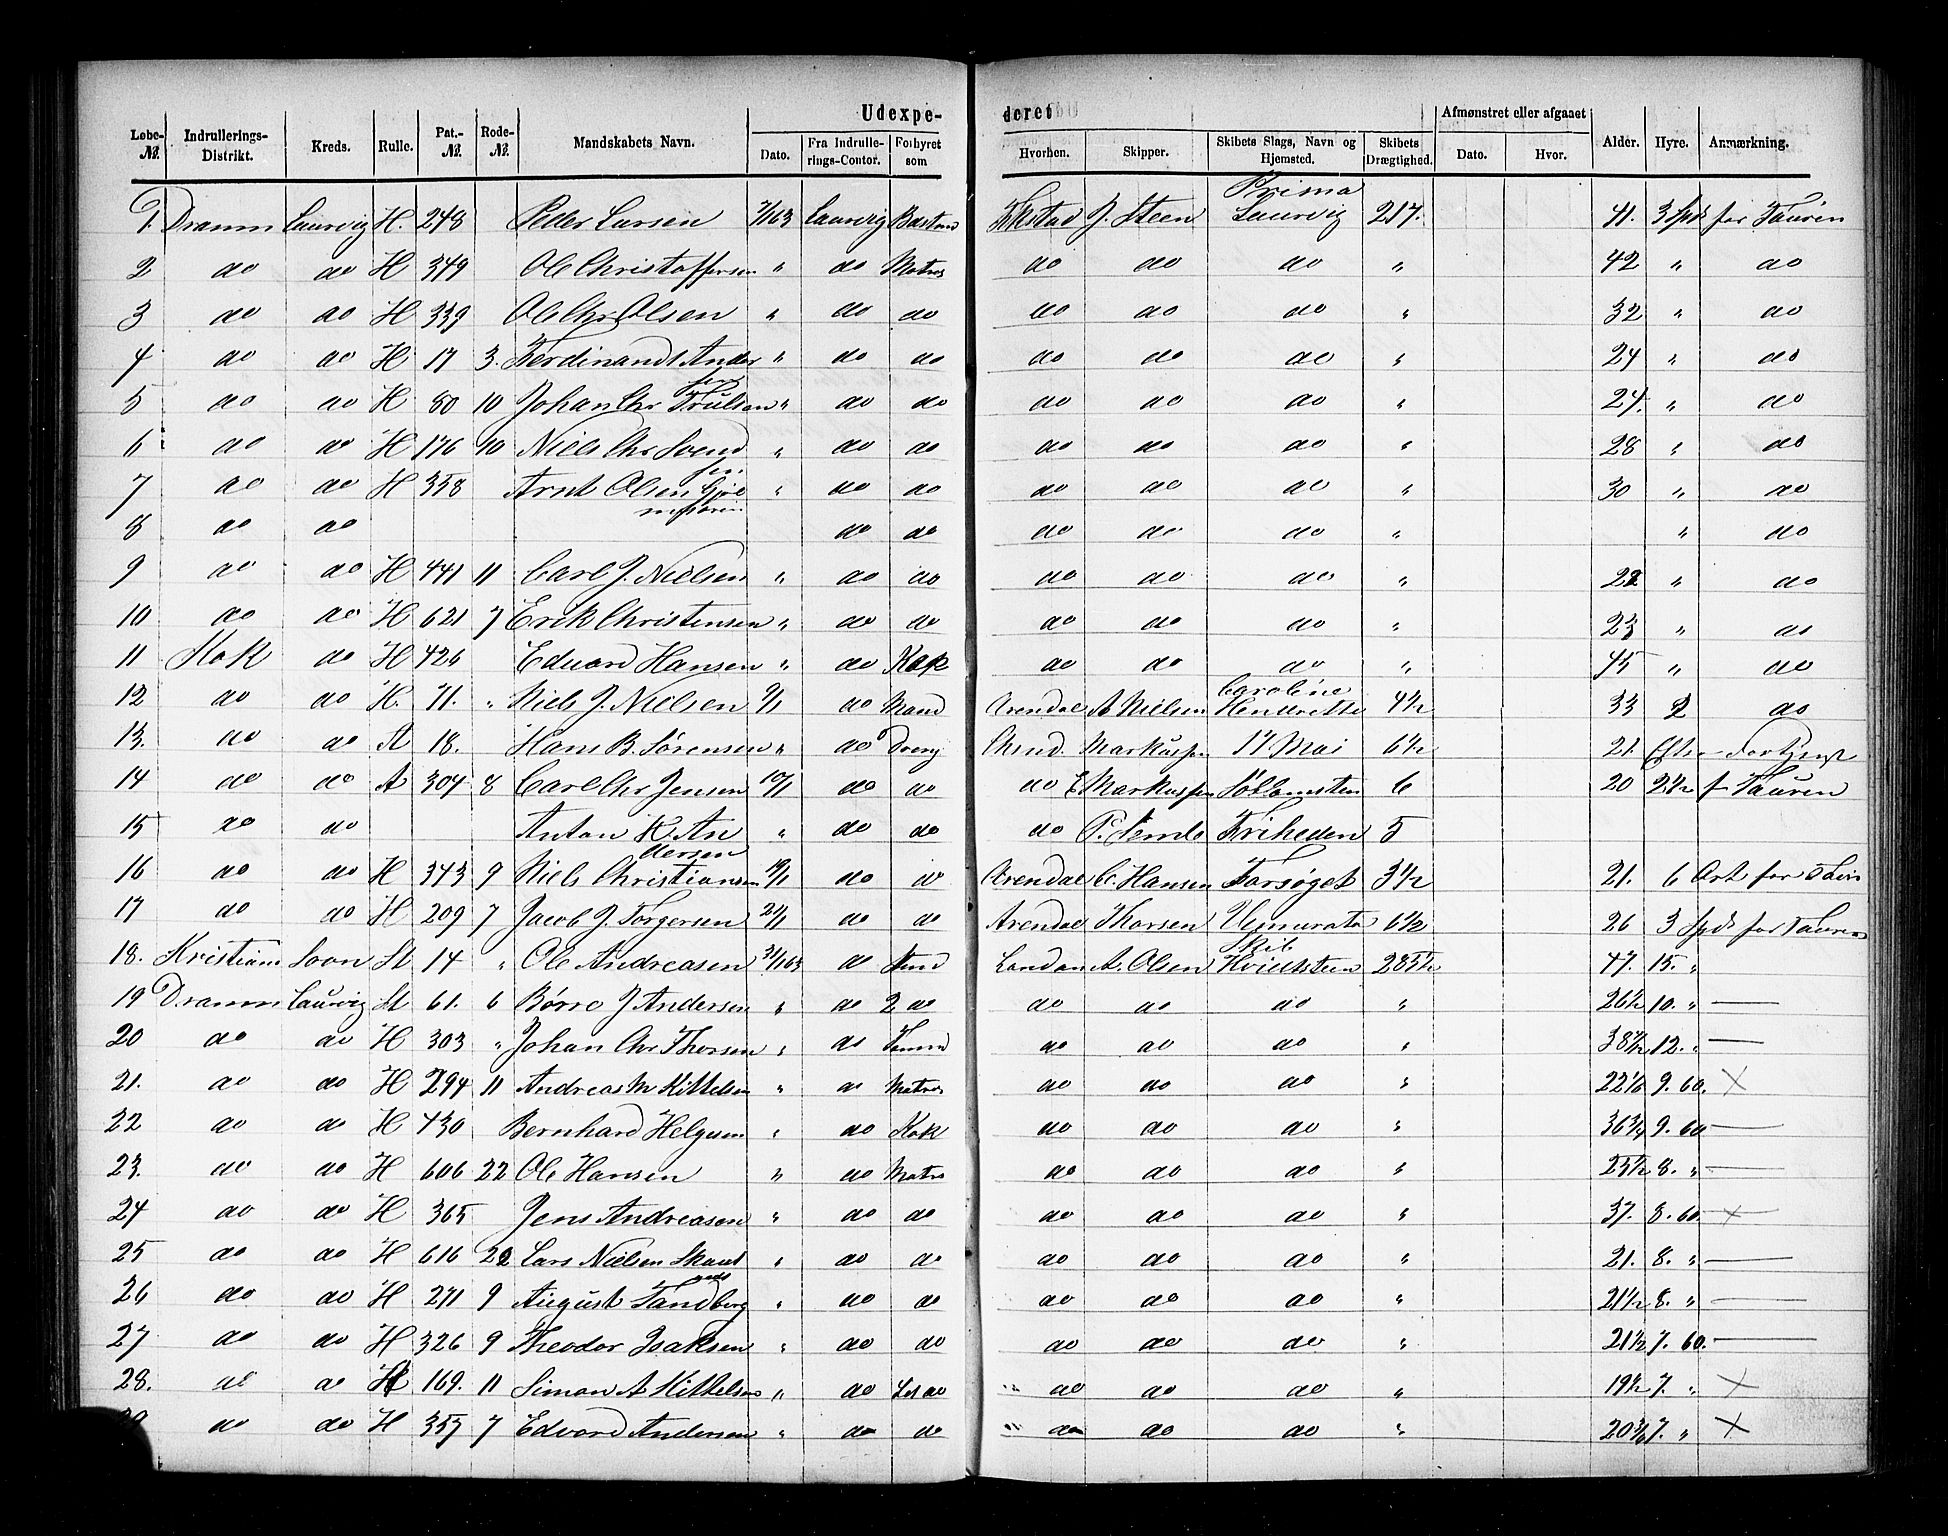 Udexpe- deret
Løbe-№. Indrullerings-Distrikt. Kreds. Rulle. Pat.-№. Rode-№. Mandskabets Navn. Dato. Fra Indrullerings-Contor. Forhyret som Hvorhen. Skipper. Skibets Slags, Navn og Hjemsted. Skibets Drægtighed. Afmønstret eller afgaaet Dato. Hvor. Alder. Hyre. Anmærkning.
1. Dramm Laurvig H. 248 Peder Larsen 7/1 63 Laurvig J. Steen Prima Laurvig 217. 41. 3 Spd for Touren
2 do do H 349 Ole Christoffersen " do Matros do do do " 42 " do
3 do do H 339 Ole Chr. Olsen " do do do do do " 32 " do
4 do do H 17 3. Ferdinandt Andersen " do do do do do " 24 " do
5 do do H 80 10 Johan Chr Trulsen " do do do do do " 24. " do
6 do do H 176 10 Niels Chr Svendsen " do do do do do " 28 " do
7 do do H 358 Arnt Olsen " do do do do do " 30 " do
8 do do do do do do do " " do
9 do do H 441 11 Carl J. Nielsen " do do do do do " 22 " do
10 do do H 621 7 Erik Christensen " do do do do do " 23 " do
11 Kok do H 426 Eduard Hansen " do Kok do do do " 45 " do
12 do do H. 71. " Niels J. Nielsen 9/1 do Mand Arendal A Nielsen Caroline Henriette 4½ 33 2 do
13. do do A 18. Hans B. Sørensen " do Dreng Markussen 17 Mai 6½ 21.
14 do do A 304 8 Carl Chr Jensen 10/1 do do do E Markussen 6 20 2½ f Touren
15 do do Anton K. Andersen " do do do P. Friheden 5
16 do do H 343 9 Niels Christiansen 19/1 do do Arendal C. Hansen Forsøget 3½ 21. 6 Ort for
17 do do H 209 7 Jacob J. Torgersen 21/1 do do Arendal Thorsen 6½ 26 3 Spd for Touren
18. Kristiania Soon St 14 " Ole Andreasen 31/1 63 do London A. Olsen Skib Hvidtsteen 285½ 47. 15. "
19 Dramm Laurvig St 61. 6 Børre J Andersen " do 2 do do do do " 26½ 10. "
20 do do H 303 " Johan Chr Thorsen " do do do do " 12. "
21. do do H 294 11 Andreas M Kittelsen " do Matros do do do " 9. 60. X
22 do do H 430 Bernhard Helgesen " do Kok do do do " 36¾ 9. 60
23. do do H 606 22 Ole Hansen " do Matros do do do " 25½ 8. "
24 do do H 365 Jens Andreasen " do do do do do " 37. 8. 60. X
25 do do H 616 22 Lars Nielsen " do do do do do " 21. 8. "
26 do do H 271 9 August Sandberg " do do do do do " 21½ 8. "
27 do do H 326 9 Theodor Isaksen " do do do do do " 21½ 7. 60.
28. do do H 169. 11 Simon A Kittelsen " do do do do " 19½ 7. " X
29 do do H 357 7 Edvard Andersen " do do do do do " 7. " X